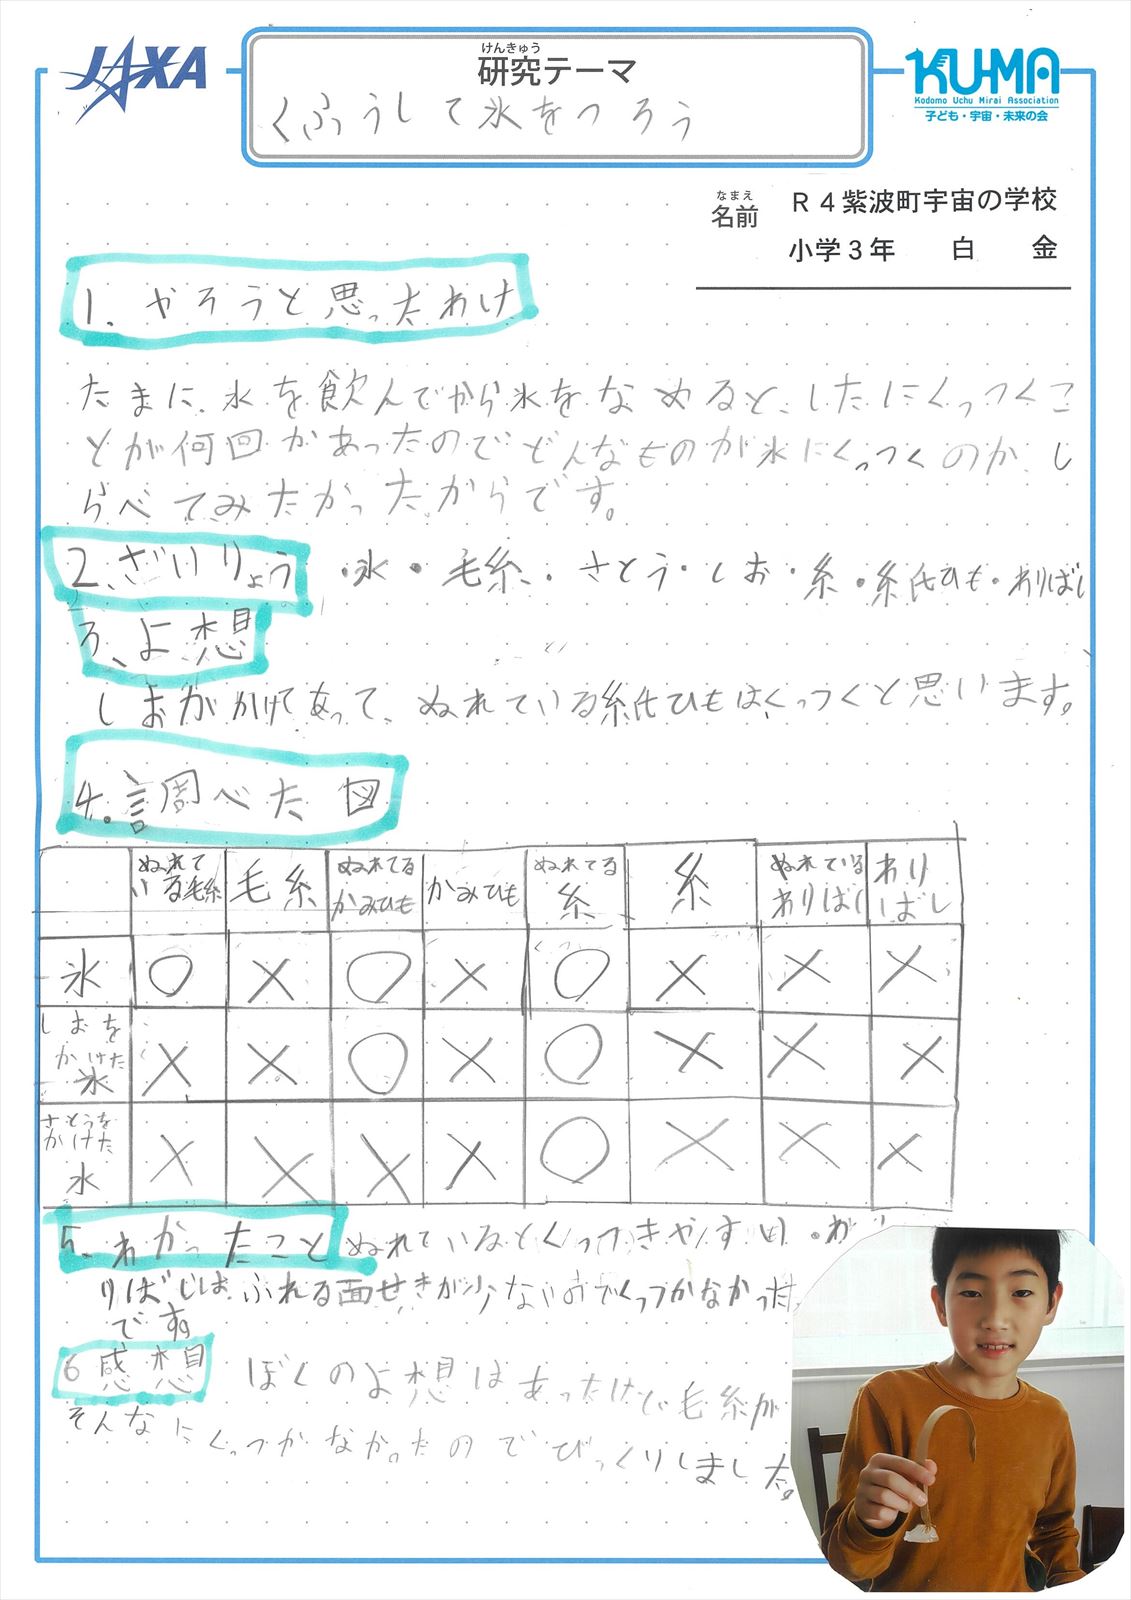 JAXA
けんきゅう
研究テーマ
くふうして氷をつろう
KU-MA
Kodomo Uchu Mirai Association
子ども・宇宙・未来の会
なまえ
名前
R4紫波町宇宙の学校
小学3年 白 金
1. やろうと思ったわけ
たまに、氷を飲んでから氷をなめると、したにくっつくこ
とが何回かあったのでどんなものが氷にくっつくのか、し
らべてみたかったからです。
2、ざいりょう ・氷・毛糸・さとう・しお・糸・紙ひも・わりばし
3、よ想
しおがかけてあって、ぬれている紙ひもはくっつくと思います。
4。調べた図
ぬれて
いる毛糸
毛糸
ぬれてる
かみひも
かみひも
ぬれてる
糸
糸
ぬれている
わりばし
わり
ばし
氷 ○ × ○ × ○ × × ×
しおを
かけた
氷
× × ○ × ○ × × ×
さとうを
かけた
氷
× × × × ○ × × ×
5. わかったこと ぬれているとくっつきやすい。わ
りばしは、ふれる面せきが少ないのでくっつかなかった
です。
6 感想 ぼくのよ想はあったけど毛糸が
そんなにくっつかなかったのでびっくりしました。